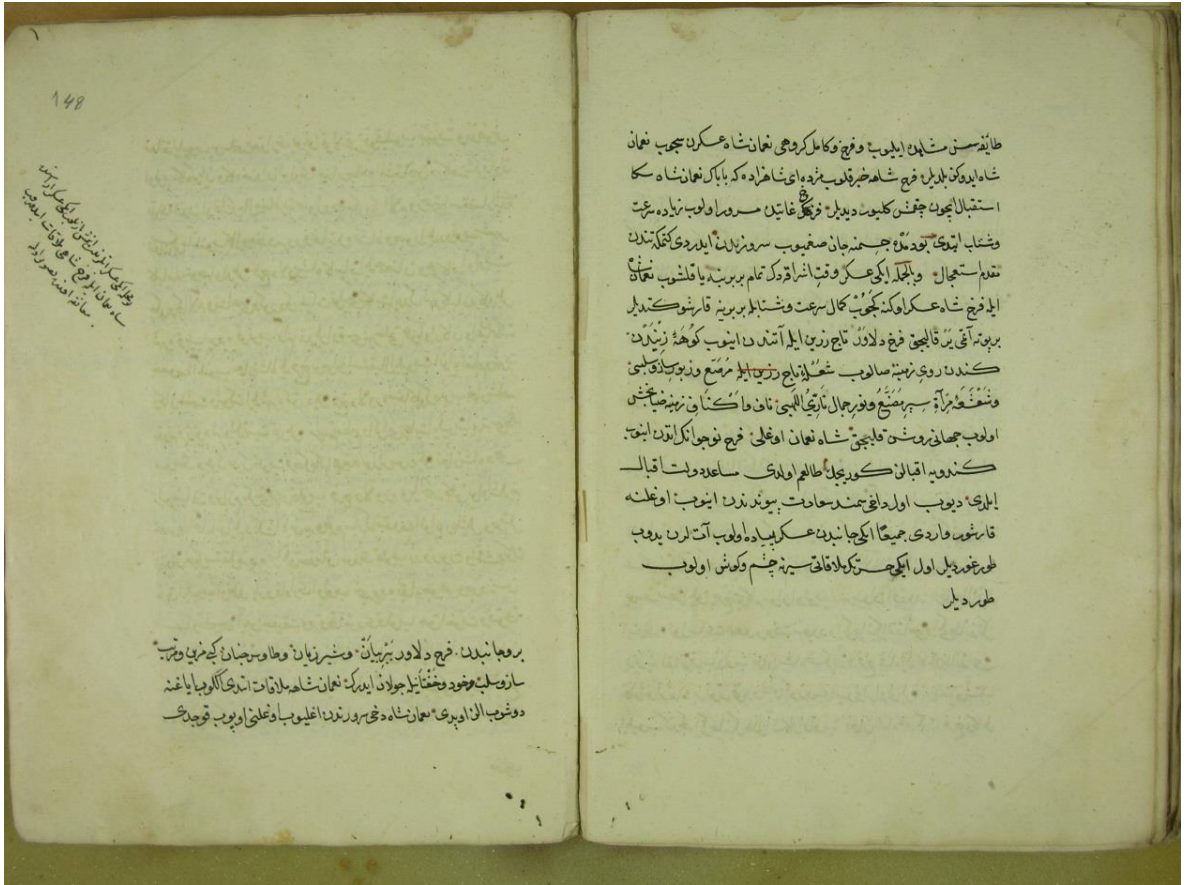 طائفه سن مشاهده ایلیوب و فرخ و کامل کروهی نعمان شاه عسکرن سچوب نعمان
شاه ایدوکن بلدیلر فرخ شاهه خبر قلوب مژده ای شاهزاده که باباک نعمان شاه سکا
استقبال ایچون چقمش کلیور دیدیلر فرخ غایتدن مسرور اولوب زیاده سرعت
و شتاب ایتدی بودمده جسمنه جان صغمیوب سرورندن ایدردی کتمکه تندن
مقدم استعجال و بالجمله ایکی عسکر وقت اشراقدک تمام بربرینه یاقلشوب نعمان شاه
ایله فرخ شاه عسکر اوکنه کچوب کمال سرعت و شتابله بربرینه قارشو کتدیلر
بر پرتاب آتمی یر قالیجق فرخ دلاور تاج زرین ایله آتندن اینوب کوههٔ زیندن
کندن روی زمینه صالوب شعلهٔ تاج زرین ایله مرصع و زیور ساز و سلبی
و شعشعهٔ مرآة سپر مصنع و نور جمال تاریء اللهی قاف و اکناف زمینه ضیا بخش
اولوب جهانی روشن قلیجق شاه نعمان اوغلی فرخ نوجوانک اتدن اینوب
کندویه اقبالن کوریجک طالعم اولدی مساعد دولت اقبال
ایلدی دیوب اول داغی سمند سعادت پیوندندن اینوب اوغلنه
قارشو واردی جمیعا ایکی جانبدن عسکر پیاده اولوب آت لرن یدوب
طورغوردیلر اول ایکی حسرتک ملاقاتی سیرنه چشم و کوش اولوب
طوردیلر
148
ایکی عسکر
شاه نعمان ایله فرخ شاهی ملاقات ایدوب
معانقه ایتدوکی تصویر اولنه
برو جانبدن فرخ دلاور ببر بیان و شیر ژیان و طاوس جنان کبی مزین و مرتب
ساز و سلب و خود و خفتانیله جولان ایدرک نعمان شاهه ملاقات ایتدی کلوب ایاغنه
دوشوب الن اوپدی نعمان شاه دخی سرورندن اغلیوب اوغلنی اوپوب قوچدی